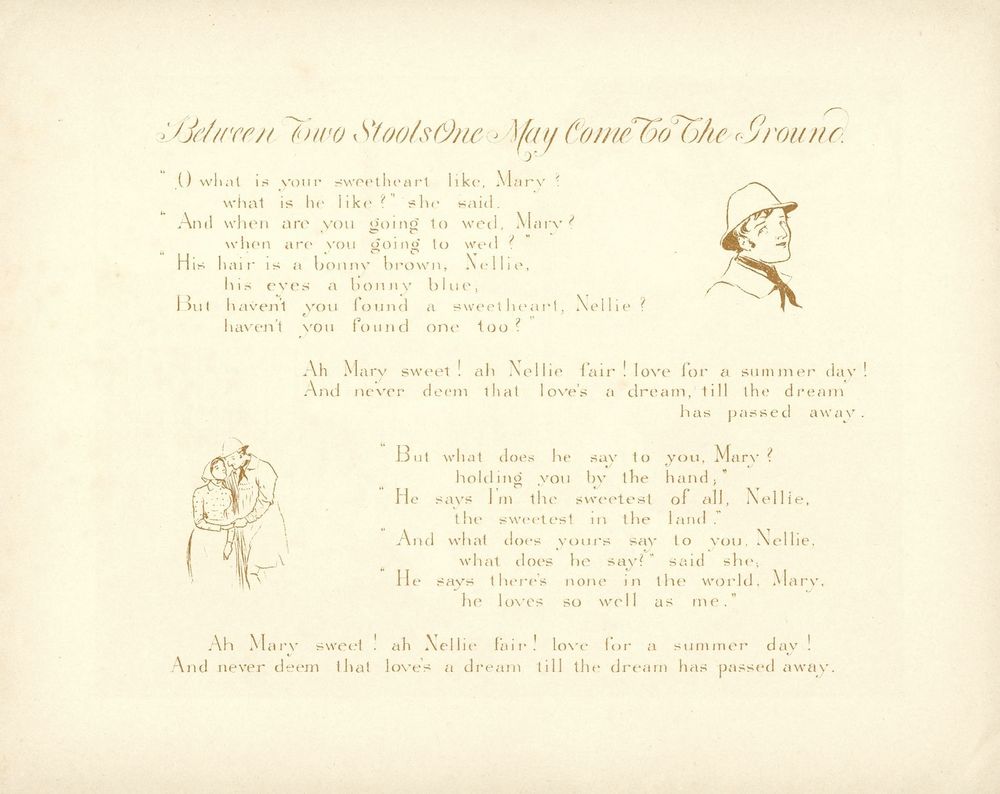 Between Two Stools One May Come To The Ground.
"O what is your sweetheart like, Mary?
what is he like?" she said.
"And when are you going to wed, Mary?
when are you going to wed?"
"His hair is a bonny brown, Nellie,
his eyes a bonny blue,
But haven't you found a sweetheart, Nellie?
haven't you found one too?"
Ah Mary sweet! ah Nellie fair! love for a summer day!
And never deem that love's a dream, till the dream
has passed away.
"But what does he say to you, Mary?
holding you by the hand;"
"He says I'm the sweetest of all, Nellie,
the sweetest in the land."
"And what does yours say to you, Nellie,
what does he say?" said she;
"He says there's none in the world, Mary,
he loves so well as me."
Ah Mary sweet! ah Nellie fair! love for a summer day!
And never deem that love's a dream till the dream has passed away.